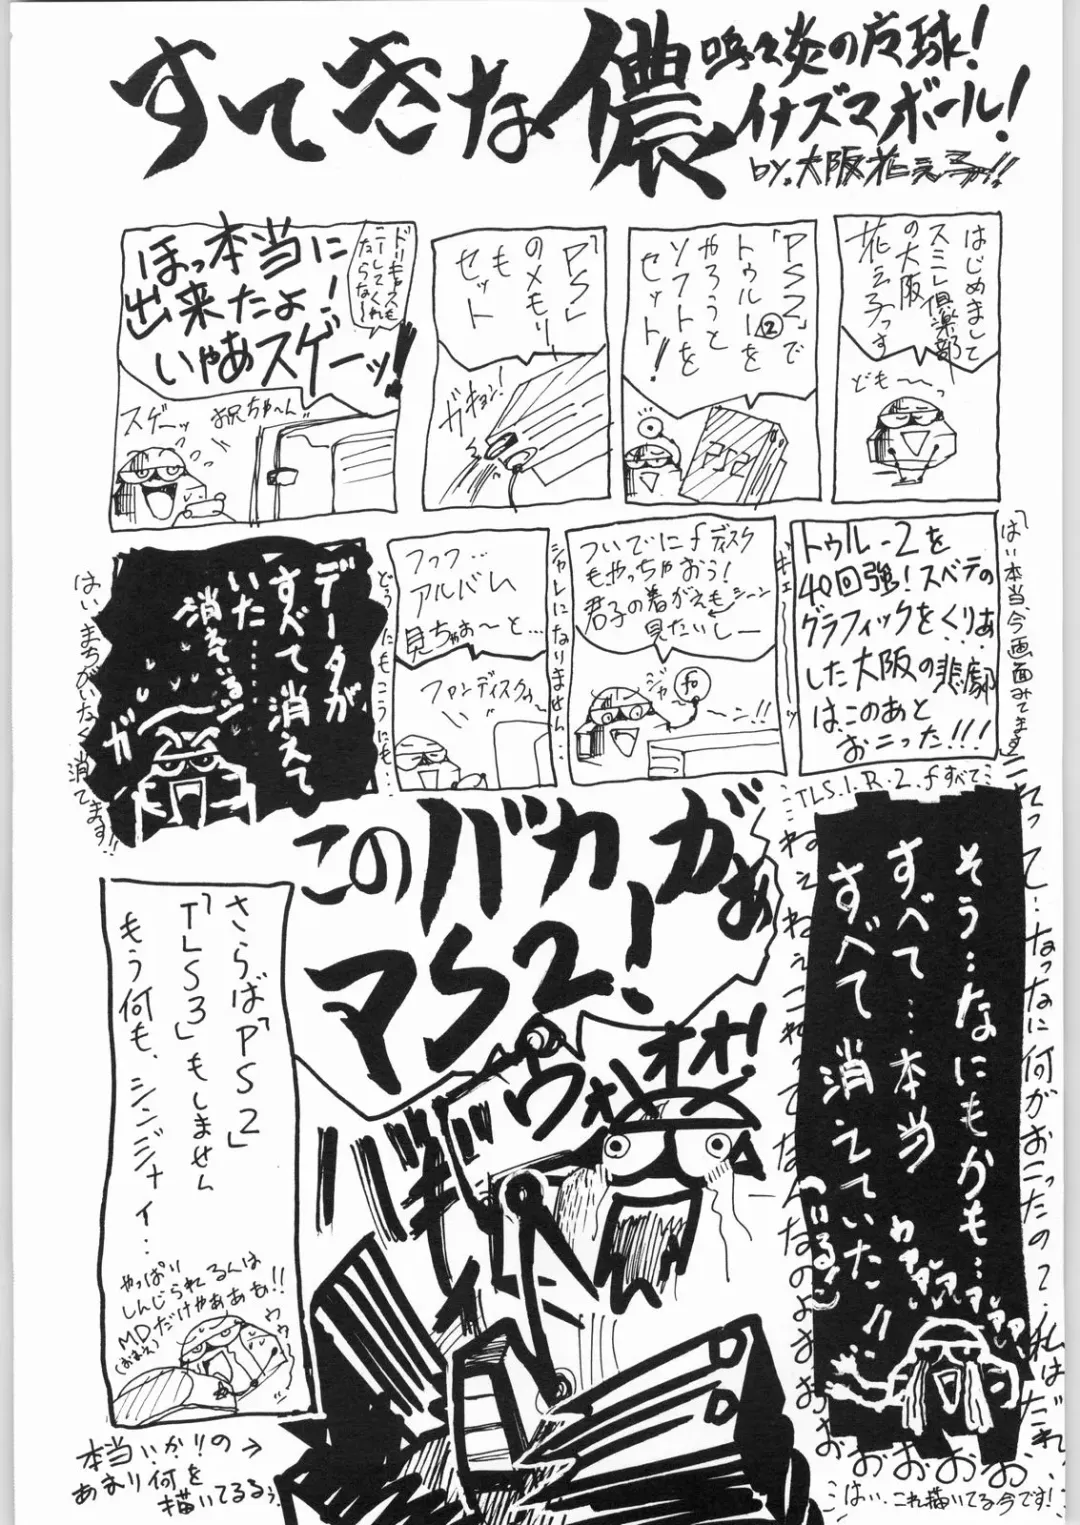 すてきな儂
嗚呼炎の庭球!
イナズマボール!
by.大阪花之子!!
はじめまして
スミレ倶楽部
の大阪
花之子っす
ども〜っ
「PS2」で
トゥルー②を
やろうと
ソフトを
セット!
PS2
「PS」
のメモリ
も
セット
ガキョン!
ほっ本当に
出来たよ!
いやあスゲーッ!
ドリキャスも
こーしてくれ
たらな〜
スゲーッ
お兄ちゃ〜ん
トゥルー2を
40回強!スベテの
グラフィックをくりあ
した大阪の悲劇
はこのあと
おこった!!!
ついでにfディスク
もやっちゃおう!
君子の着がえもシーン
見たいしー
ジャ
〜ン!!
フッフ…
アルバム
見ちゃお〜と…
ファンディスクぅ
データが
すべて消えて
いた……
消えてるン
ガ
「はい本当、今画面みてます」
ギェ〜ッ
シャレになりません…
どうにもこうにも…
はい、まちがいなく消えてます!!
TLS.1.R.2.fすべて
そう…なにもかも…
すべて…本当
すべて消えていた!!
これって…なったなに何がおこったの?私はだれ
ねぇねぇねぇこれってなんなのよぉぉぉぉぉぉ
はい…これ描いてる今です!
このバカがぁ
マS2!
ウォオオオ!
バギ
さらば「PS2」
「TLS3」もしません
もう何も、シンジナイ…
やっぱい
しんじられるんは
MDだけやああぁ!!
(おまえ)
本当いかりの→
あまり何を
描いてるるぅ